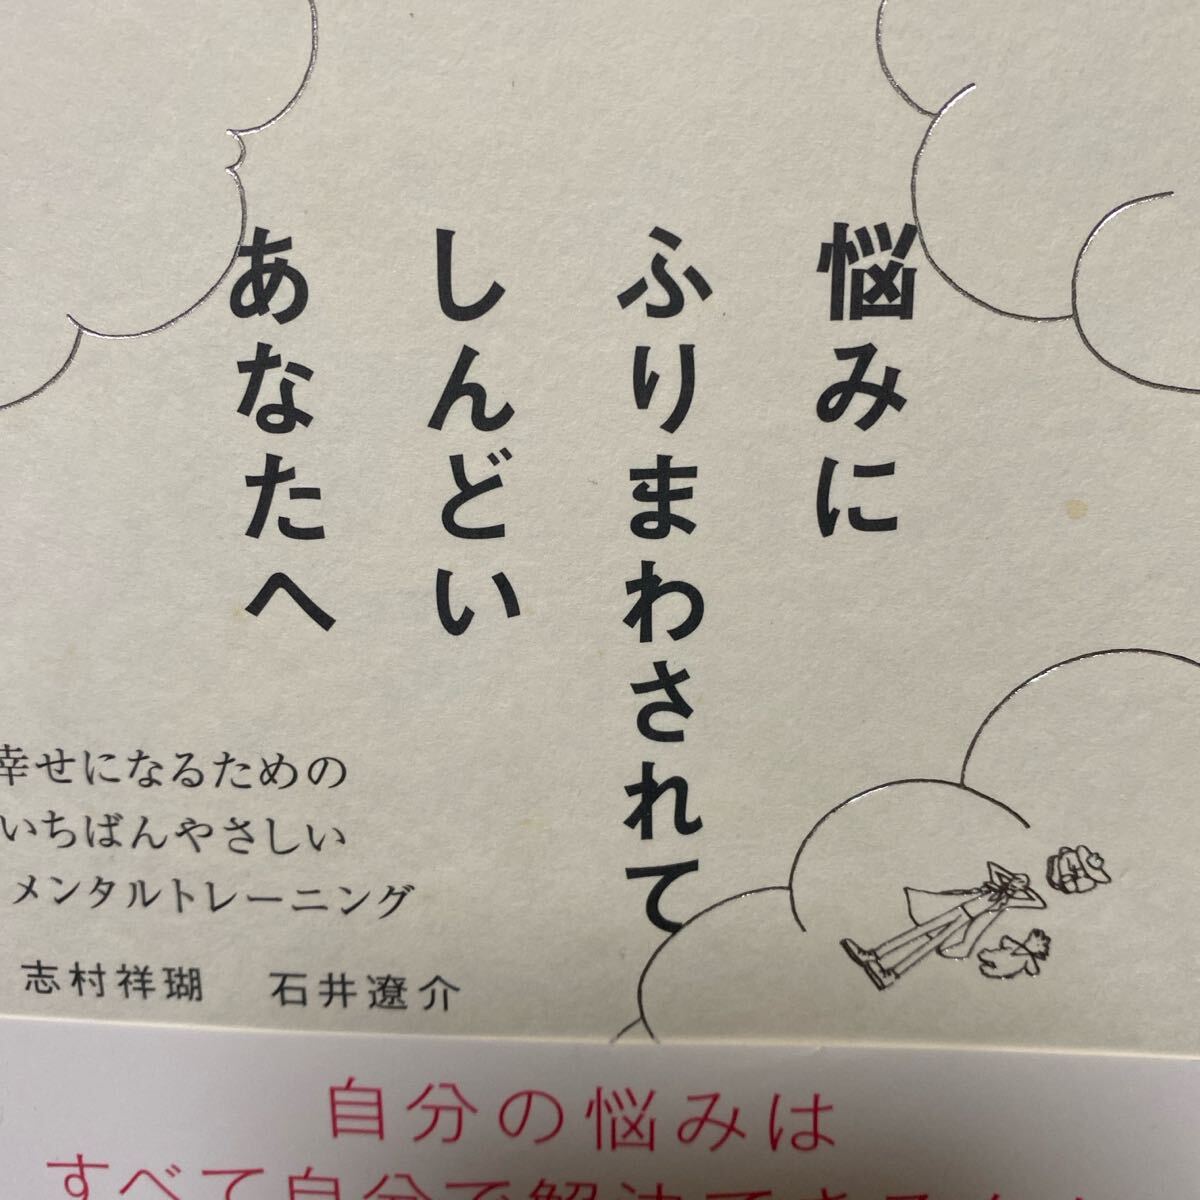 悩みに
ふりまわされて
しんどい
あなたへ
幸せになるための
いちばんやさしい
メンタルトレーニング
志村祥瑚 石井遼介
自分の悩みは
すべて自分で解決できる